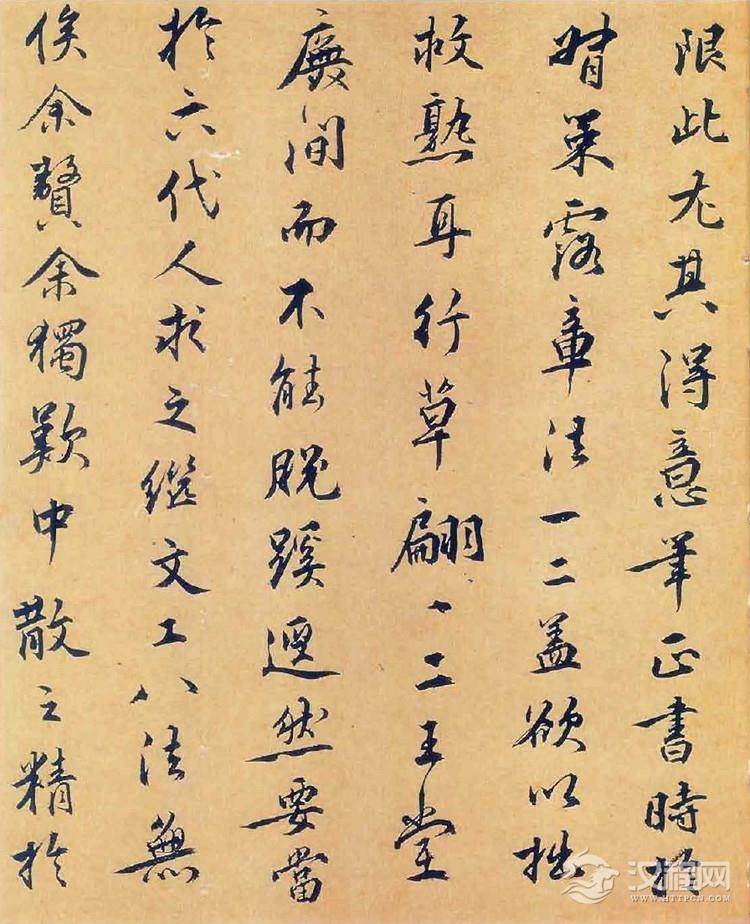 限此尤其得意筆正書時於
策露章法一二蓋欲以拙
救熟耳行草翩〻二王堂
廡間而不能脫蹊逕然要當
於六代人求之繼文工八法無
俟余贊余獨歎中散之精於
汉程网
WWW.HTTPCN.COM